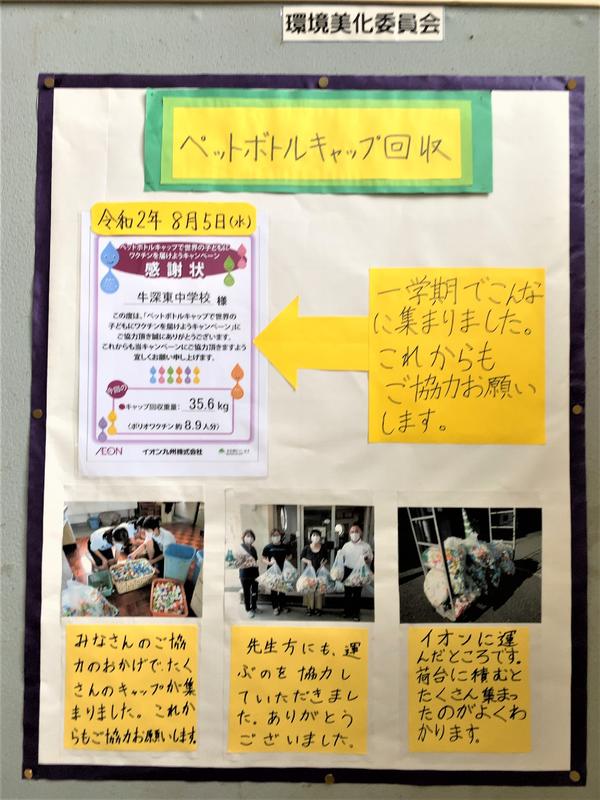 環境美化委員会
ペットボトルキャップ回収
令和2年 8月5日(水)
ペットボトルキャップで世界の子どもに
ワクチンを届けようキャンペーン
感謝状
牛深東中学校 様
この度は、「ペットボトルキャップで世界の
子どもにワクチンを届けようキャンペーン」に
ご協力頂き誠にありがとうございます。
これからも当キャンペーンにご協力頂きますよう
宜しくお願い申し上げます。
今回の
●キャップ回収重量: 35.6 kg
(ポリオワクチン 約 8.9 人分)
AEON イオン九州株式会社
一学期でこんな
に集まりました。
これからも
ご協力お願い
します。
みなさんのご協
力のおかげで、たく
さんのキャップが集
まりました。これか
らもご協力お願いします。
先生方にも、運
ぶのを協力し
ていただきまし
た。ありがとう
ございました。
イオンに運
んだところです。
荷台に積むと
たくさん集まっ
たのがよくわ
かります。